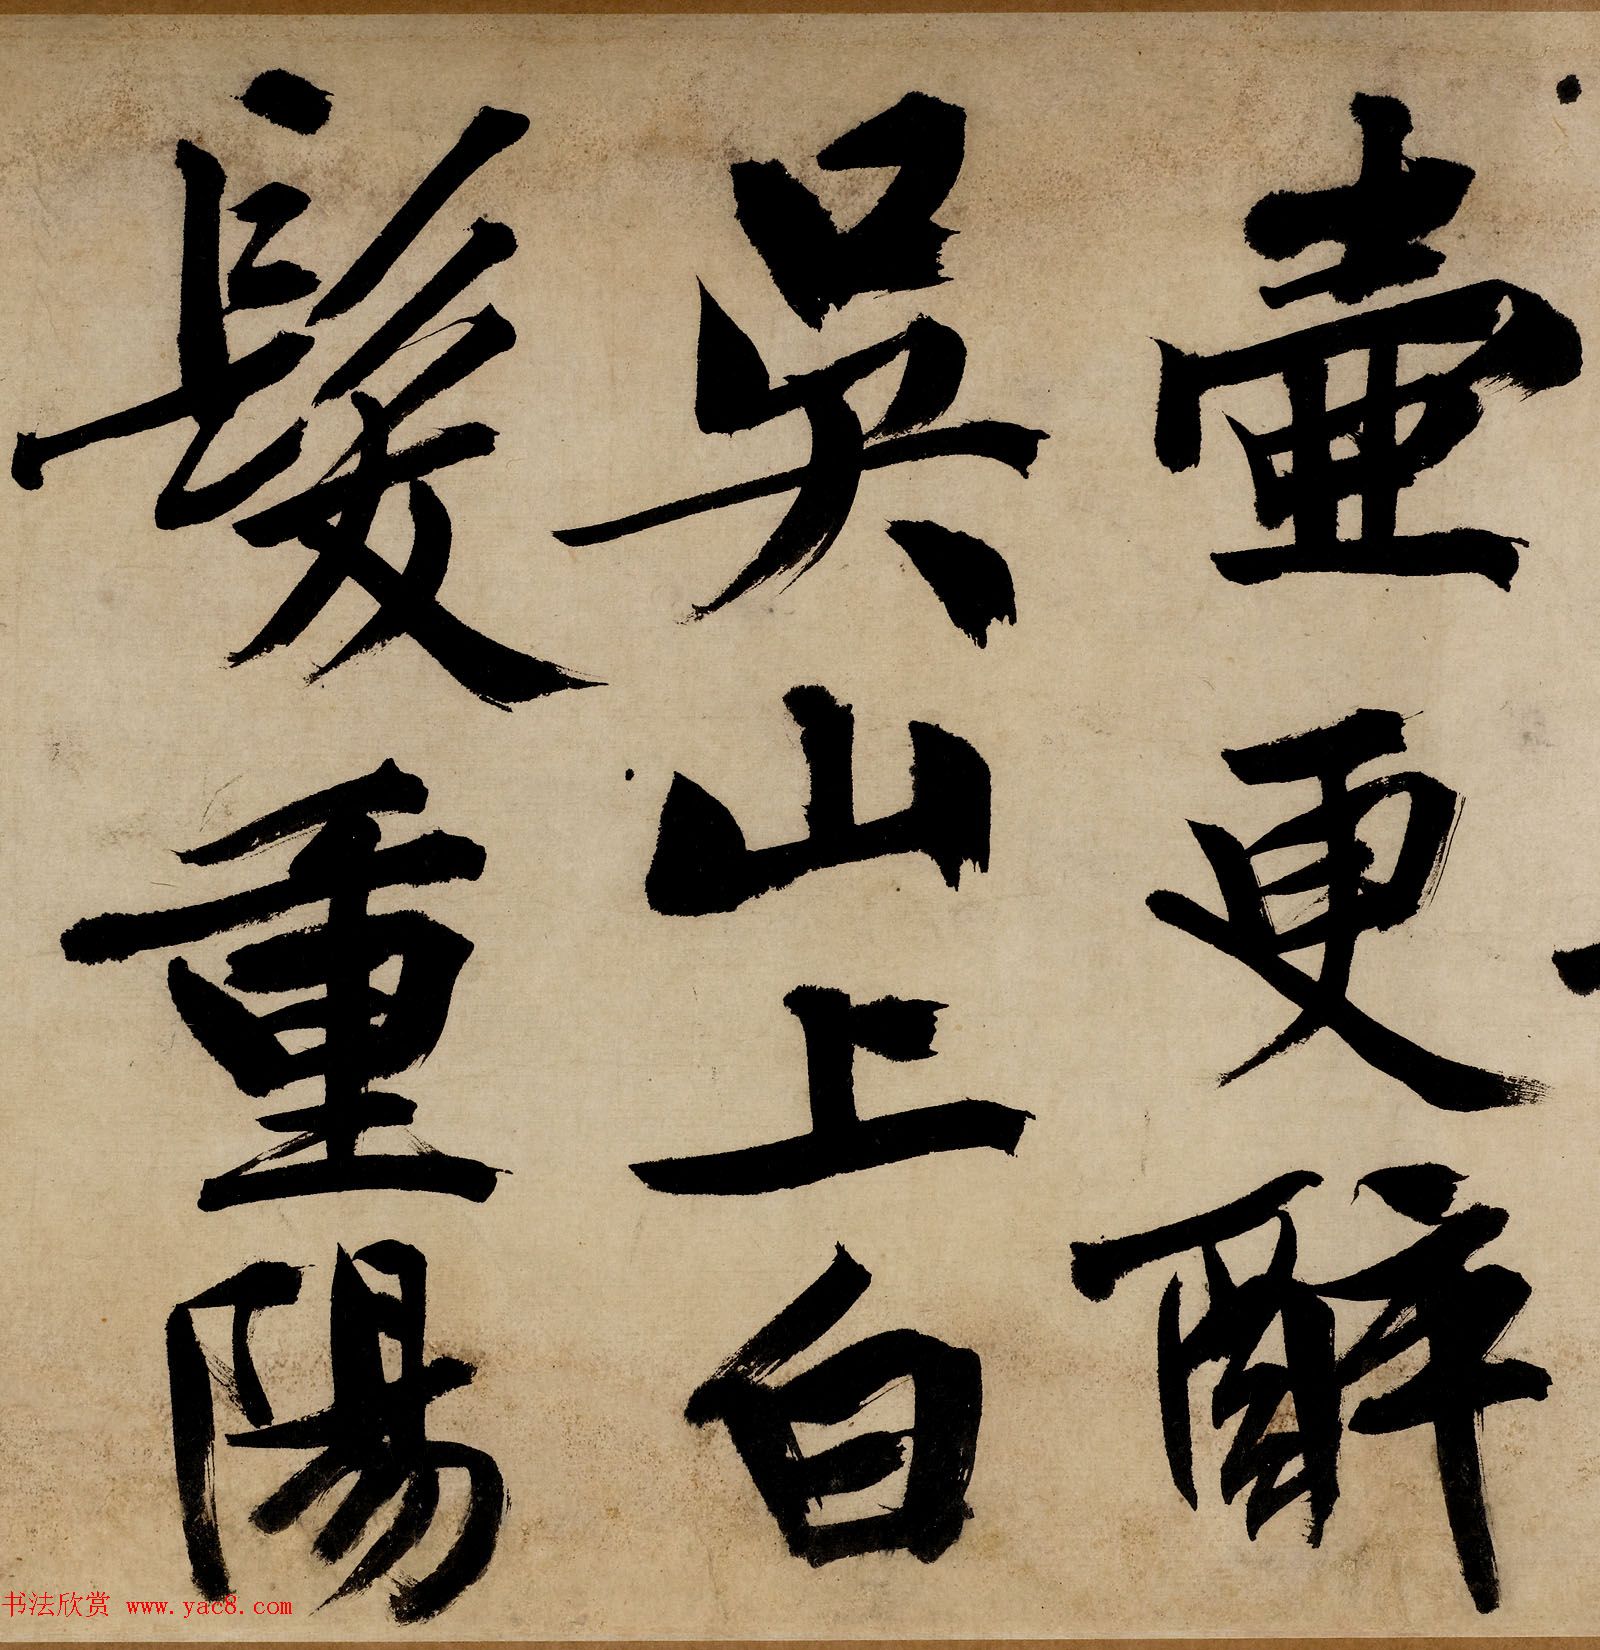 壺更醉
吳山上白
髮重陽
书法欣赏 www.yac8.com